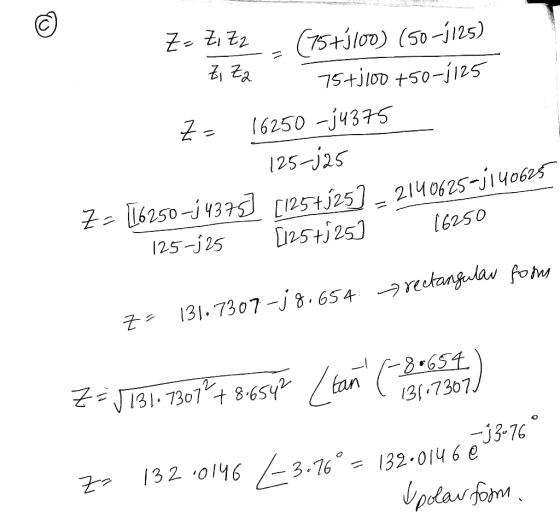 ⓒ
Z = Z1 Z2 / Z1 Z2 = (75+j100) (50-j125) / 75+j100+50-j125
Z = 16250 -j4375 / 125-j25
Z = [16250-j4375] / 125-j25 [125+j25] / [125+j25] = 2140625-j140625 / 16250
Z = 131.7307-j8.654 → rectangular form
Z = √131.7307² + 8.654² ∠tan⁻¹ (-8.654 / 131.7307)
Z = 132.0146 ∠-3.76° = 132.0146 e^-j3.76°
↓polar form.